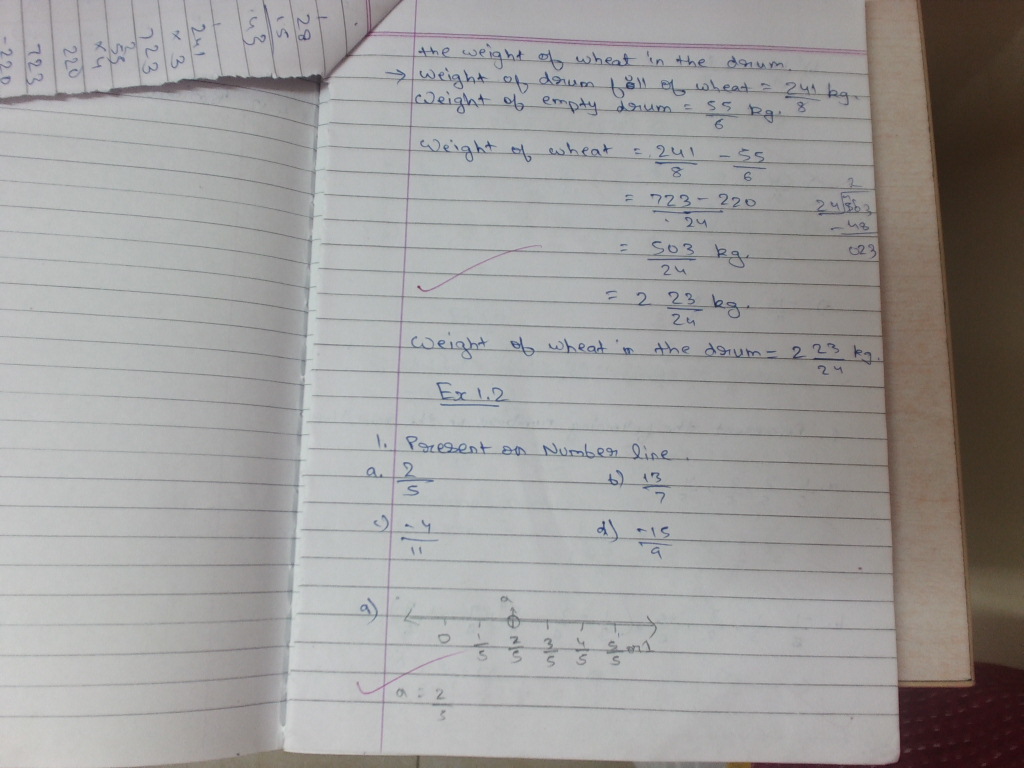 29
15
43
241
× 3
723
55
×4
220
220
723
-220
the weight of wheat in the drum.
→ weight of drum full of wheat = 241/8 kg.
Weight of empty drum = 55/6 kg.
Weight of wheat = 241/8 - 55/6
= 723 - 220/24
2
24 503
- 48
023
= 503/24 kg.
= 2 23/24 kg.
Weight of wheat in the drum = 2 23/24 kg.
Ex 1.2
1. Present on Number line.
a. 2/5 b) 13/7
c) -4/11 d) -15/9
a) a
0 1/5 2/5 3/5 4/5 5/5 or 1
a = 2/5